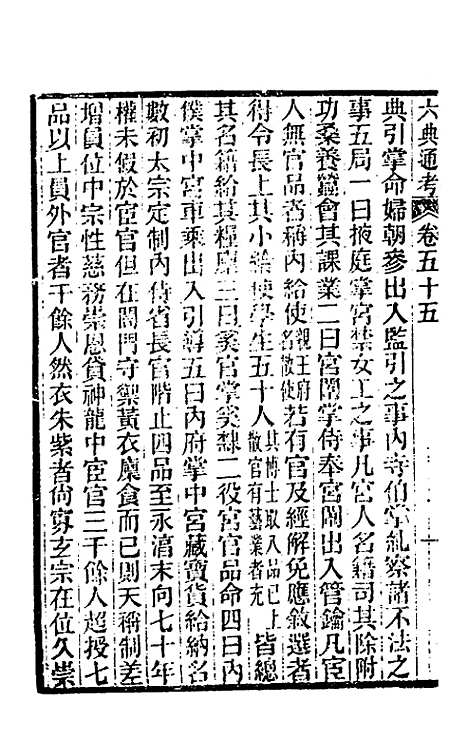 六典通考 卷五十五
典引掌命婦朝參出入監引之事內寺伯掌糾察諸不法之
事五局一曰掖庭掌宮禁女工之事凡宮人名籍司其除附
功桑養蠶會其課業二曰宮闈掌侍奉宮闈出入管鑰凡宦
人無官品者稱內給使親王府名散使若有官及經解免應敘選者
得令長上其小給使學生五十人其博士取入品已上散官有藝業者充皆總
其名籍給其糧廩三曰奚官掌奚隸工役宮官品命四曰內
僕掌中宮車乘出入引導五曰內府掌中宮藏寶貨給納名
數初太宗定制內侍省長官階止四品至永淳末向七十年
權未假於宦官但在閤門守禦黃衣廩食而已則天稱制差
增員位中宗性慈務崇恩貸神龍中宦官三千餘人超授七
品以上員外官者千餘人然衣朱紫者尚寡玄宗在位久崇